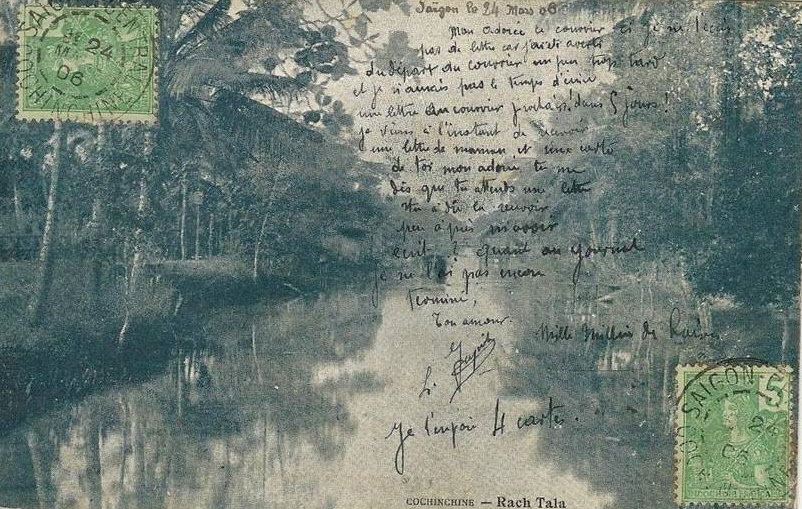 Saigon le 24 Mars 06
Mon adorée ce courrier ci je ne t'écris
pas de lettre car j'ai été averti
du départ du courrier un peu trop tard
et je n'aurais pas le temps d'écrire
une lettre Au courrier prochain dans 5 jours !
je viens à l'instant de recevoir
une lettre de maman et une carte
de toi mon adorée tu me
dis que tu attends une lettre
tu a dû la recevoir
peu après m'avoir
écrit ? Quant au journal
je ne l'ai pas encore
Terminé,
Ton amour.
Mille Millions de Baisers
Je t'envoie 4 cartes.
COCHINCHINE — Rach Tala
SAIGON CENTRAL
COCHINCHINE
24
MARS
06
SAIGON
24
06
5
INDOCHINE